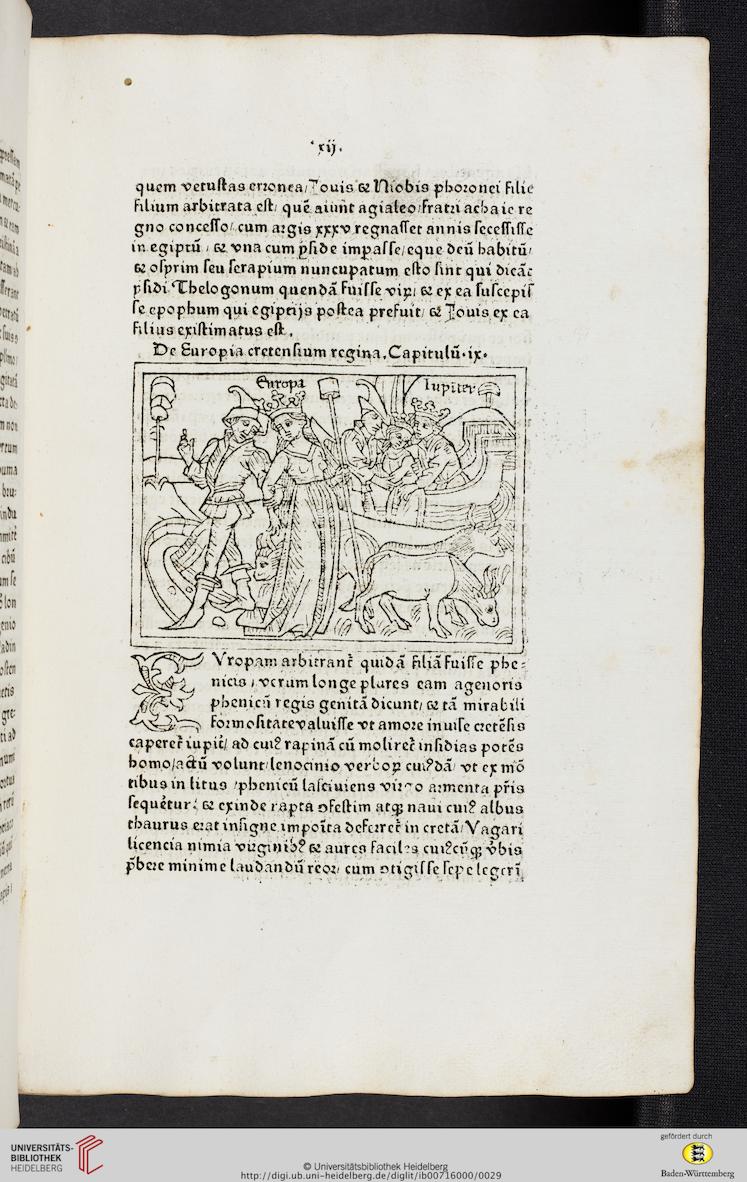 ·xij·
quem vetustas erronea/Iouis & Niobis phoronei filie
filium arbitrata est/ quē aiunt agialeo/fratri achaie re
gno concesso/ cum argis xxxv regnasset annis secessisse
in egiptū / & vna cum p̄side imꝑasse/eque deū habitū/
& osyrim seu serapium nuncupatum esto sint qui dicāt
ysidi Thelogonum quendā fuisse viꝝ/ & ex ea suscepis
se epophum qui egiptijs postea prefuit/ & Iouis ex ea
filius existimatus est.
De Europia cretensium regina. Capitulū·ix·
Europa
Iupiter
EVropam arbitrant᷑ quidā filiā fuisse phe⸗
nicis / verum longe plures eam agenoris
phenicū regis genitā dicunt/ & tā mirabili
formositate valuisse vt amore inuise cretēsis
caperet᷑ iupit̄/ ad cui⁹ rapinā cū moliret᷑ insidias potēs
homo/actū volunt/lenocinio verboꝝ cui⁹dā/ vt ex mō
tibus in litus /phenicū lasciuiens virgo armenta p̄ris
sequēt᷑ur/ & exinde rapta ꝯfestim atqꝫ naui cui⁹ albus
thaurus erat insigne impoīta deferret᷑ in cretā/ Vagari
licencia nimia virginib⁹ & aures faciles cui⁹cūqꝫ v̄bis
p̄bere minime laudandū reor/ cum ꝯtigisse sepe legerī
UNIVERSITÄTS-
BIBLIOTHEK
HEIDELBERG
© Universitätsbibliothek Heidelberg
http://digi.ub.uni-heidelberg.de/diglit/ib00716000/0029
gefördert durch
Baden-Württemberg